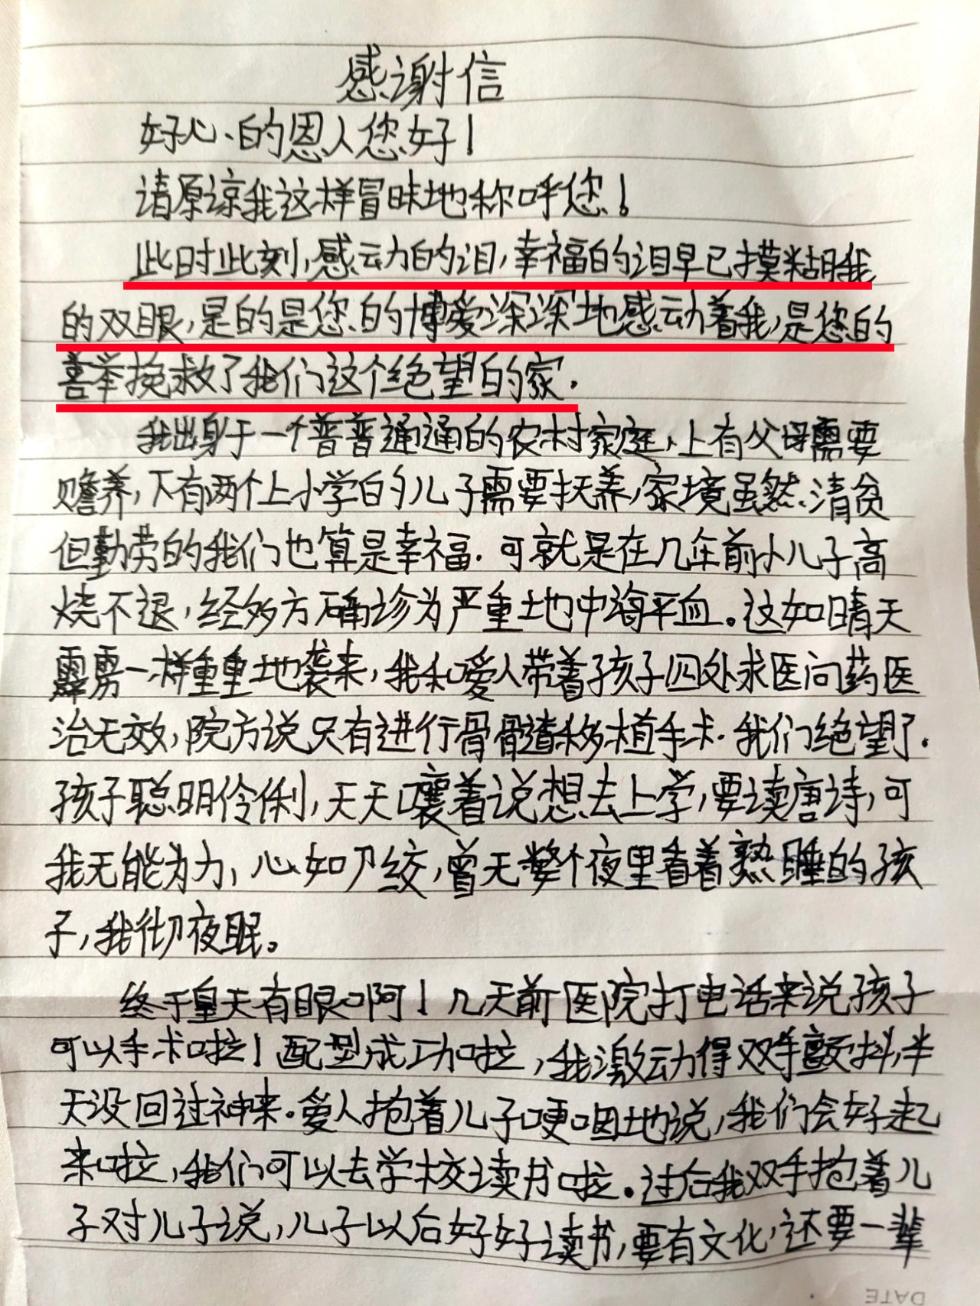 感谢信
好心的恩人您好！
请原谅我这样冒昧地称呼您！
此时此刻，感动的泪，幸福的泪早已摸糊我
的双眼，是的是您的博爱深深地感动着我，是您的
善举挽救了我们这个绝望的家.
我出身于一个普普通通的农村家庭，上有父母需要
赡养，下有两个上小学的儿子需要抚养，家境虽然清贫
但勤劳的我们也算是幸福.可就是在几年前小儿子高
烧不退，经多方确诊为严重地中海平血。这如晴天
霹雳一样重重地袭来，我和爱人带着孩子四处求医问药医
治无效，院方说只有进行骨髓移植手术.我们绝望了.
孩子聪明伶俐，天天嚷着说想去上学，要读唐诗，可
我无能为力，心如刀绞，曾无整个夜里看着熟睡的孩
子，我彻夜眠。
终于皇天有眼啊！几天前医院打电话来说孩子
可以手术啦！配型成功啦，我激动得双手颤抖，半
天没回过神来.爱人抱着儿子哽咽地说，我们会好起
来啦，我们可以去学校读书啦。过后我双手抱着儿
子对儿子说，儿子以后好好读书，要有文化，还要一辈
DATE